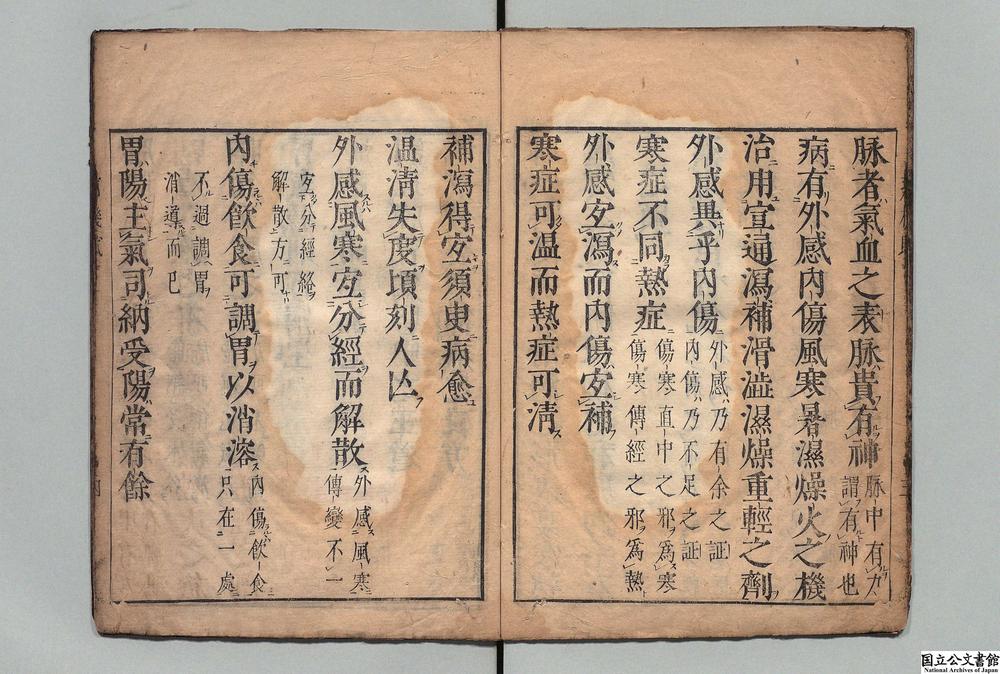 脉者氣血之表脉貴有神脉中有力謂有神也
病有外感內傷風寒暑濕燥火之機
治用宣通瀉補滑澁濕燥重輕之劑
外感異乎內傷外感乃有余之証內傷乃不足之証
寒症不同熱症傷寒直中之邪爲寒傷寒傳經之邪爲熱
外感宐瀉而內傷宐補
寒症可温而熱症可淸
補瀉得宐須臾病愈
温淸失度頃刻人亾
外感風寒宐分經而解散外感風寒傳變不一
宐分經絡解散方可
內傷飮食可調胃以消溶內傷飮食只在一處
不過調胃消導而已
胃陽主氣司納受陽常有餘
国立公文書館
National Archives of Japan